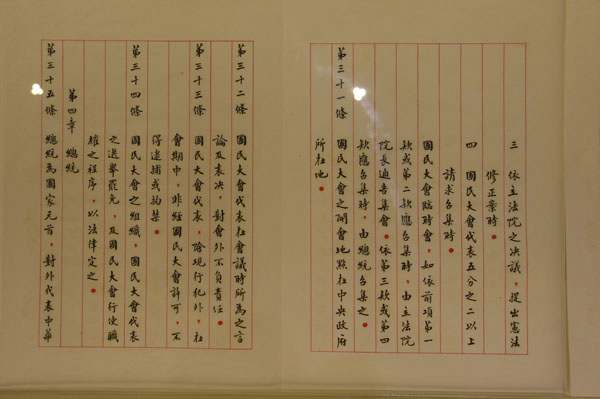 三　依立法院之決議，提出憲法
修正案時。
四　國民大會代表五分之二以上
請求召集時。
國民大會臨時會，如依前項第一
款或第二款應召集時，由立法院
院長通告集會。依第三款或第四
款應召集時，由總統召集之。
第三十一條　國民大會之開會地點在中央政府
所在地。
第三十二條　國民大會代表在會議時所為之言
論及表決，對會外不負責任。
第三十三條　國民大會代表，除現行犯外，在
會期中，非經國民大會許可，不
得逮捕或拘禁。
第三十四條　國民大會之組織，國民大會代表
之選舉罷免，及國民大會行使職
權之程序，以法律定之。
第四章　總統
第三十五條　總統為國家元首，對外代表中華